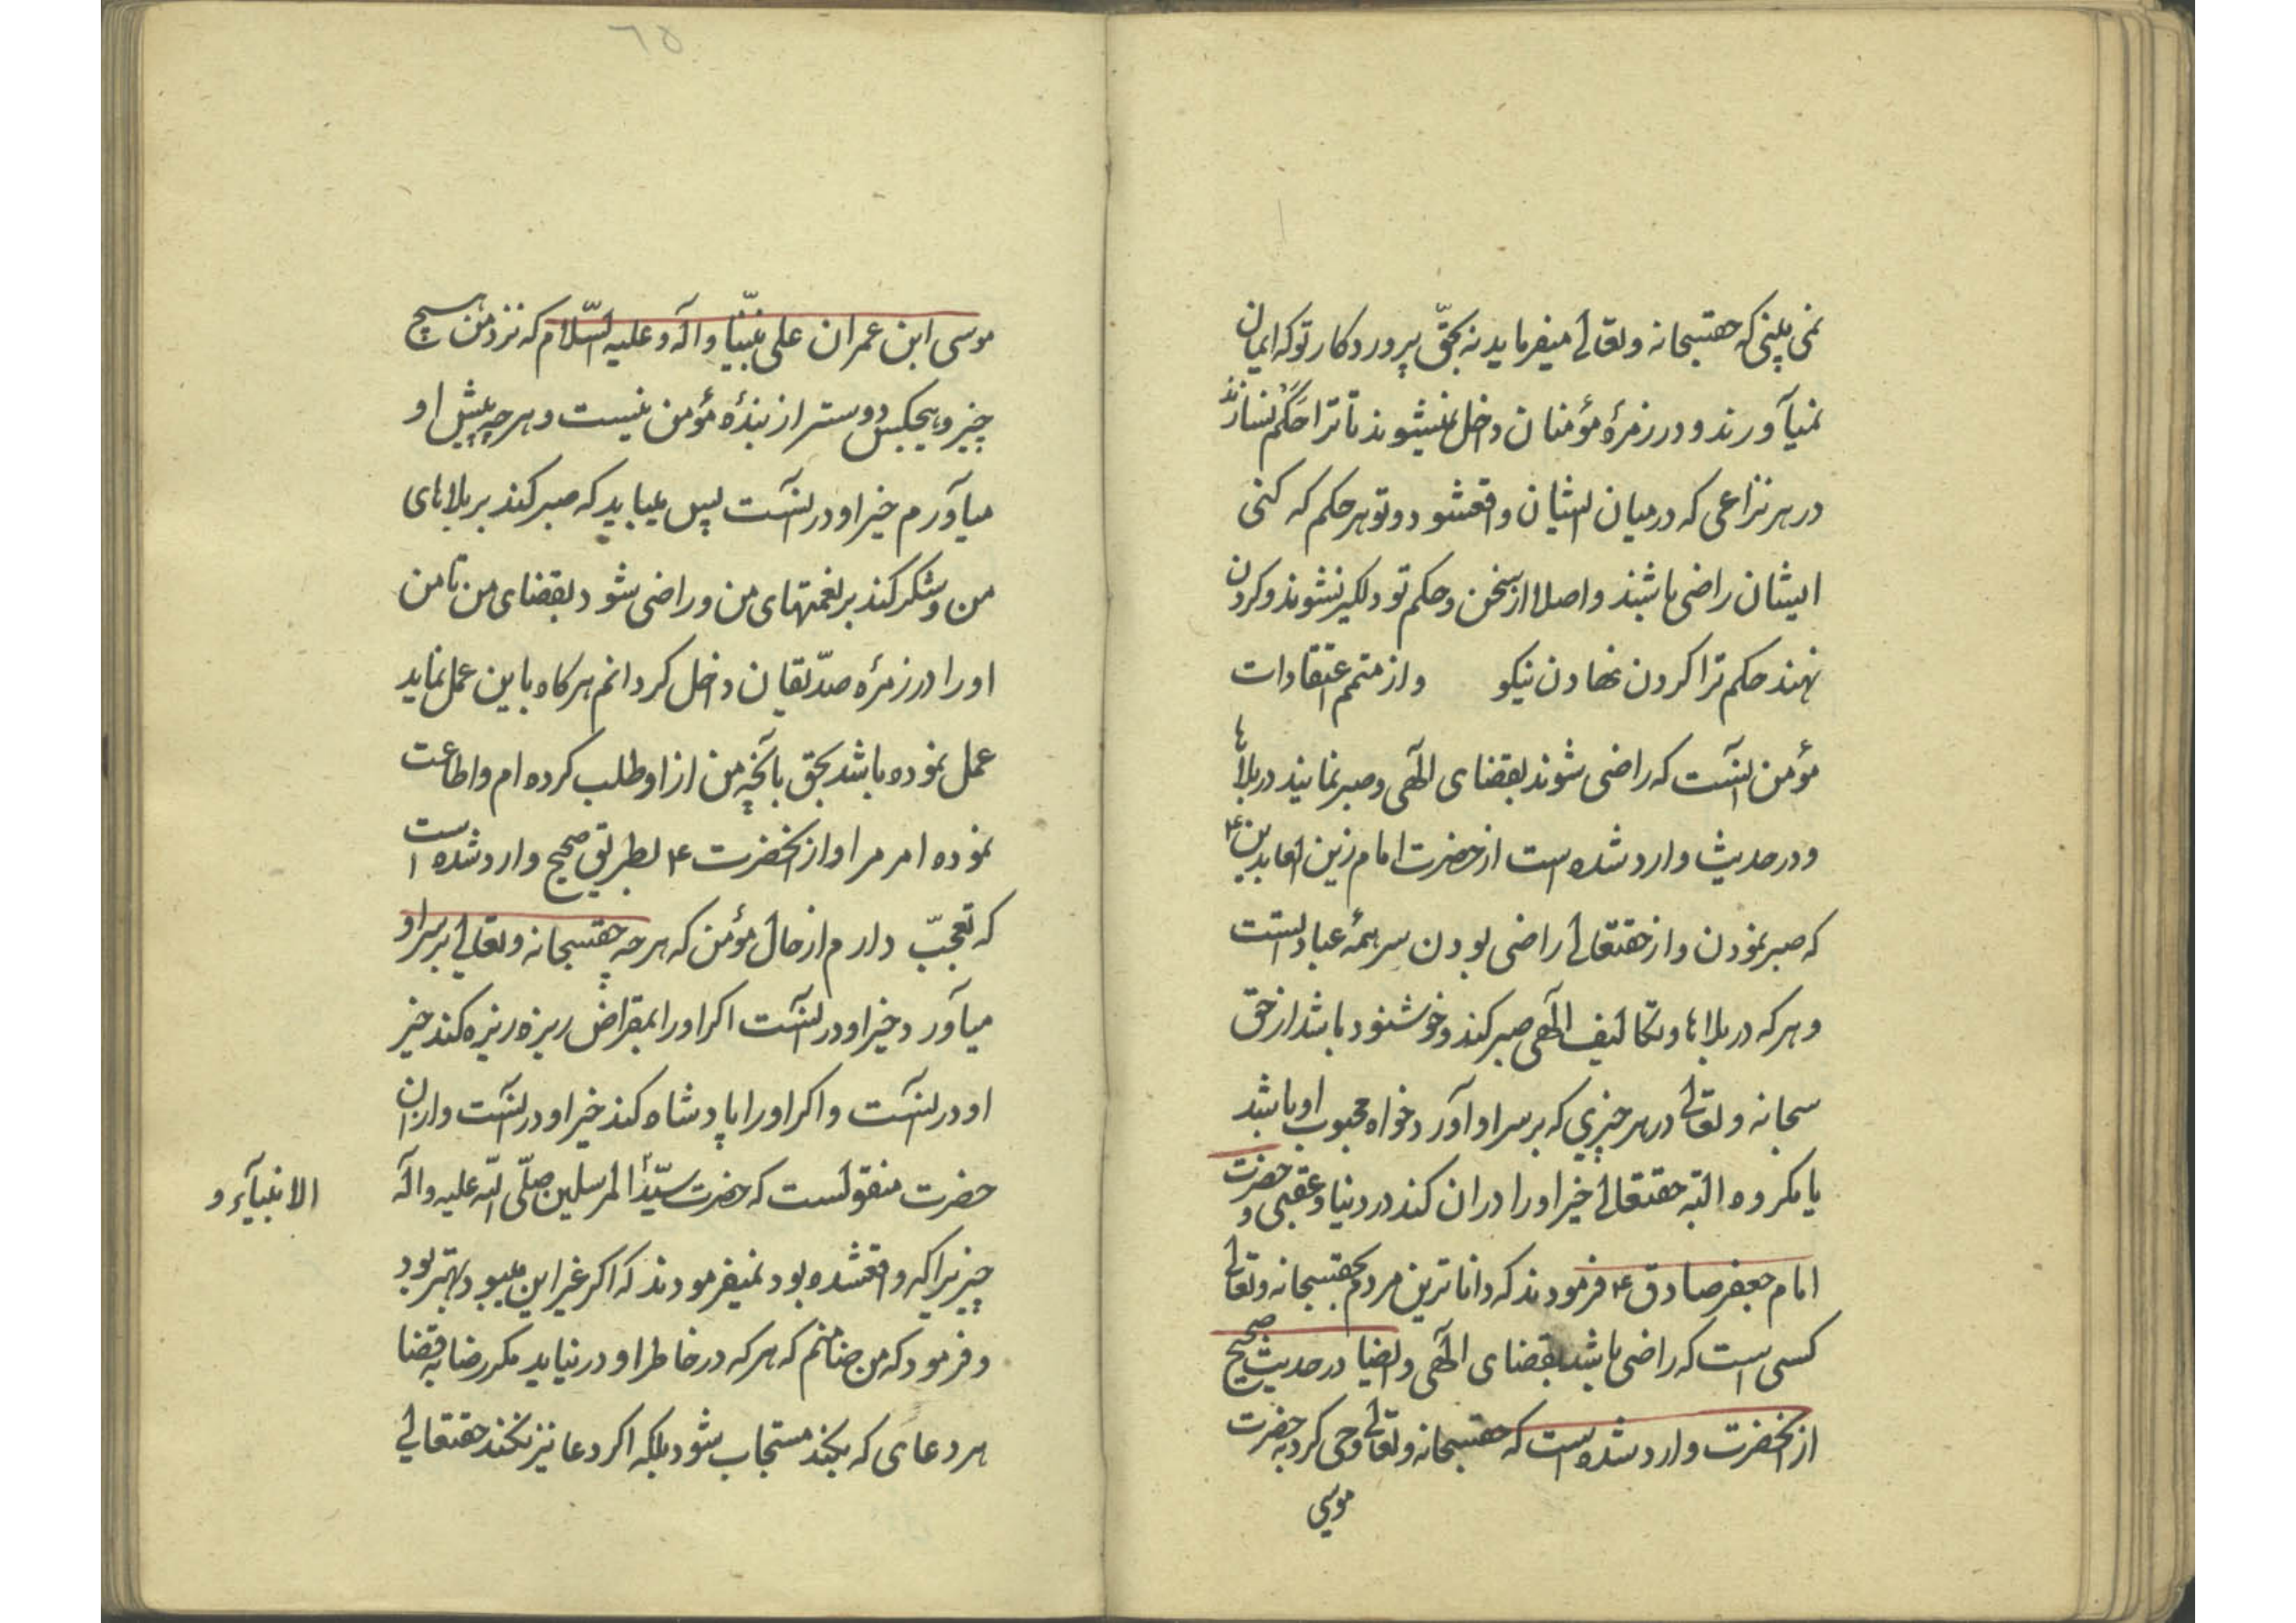 نمی بینی که حقسبحانه وتعالی میفرماید نه بحقّ پروردکار تو که ایمان
نمیآورند و در زمرهٔ مؤمنان داخل نمیشوند تا ترا حَکَم نسازند
در هر نزاعی که در میان ایشان واقعشود و تو هر حکم که کنی
ایشان راضی باشند و اصلا از سخن و حکم تو دلکیر نشوند و کردن
نهند حکم ترا کردن نهادن نیکو و از متمم اعتقادات
مؤمن آنست که راضی شوند بقضای الٓهی و صبر نمایند در بلاها
و در حدیث وارد شده است از حضرت امام زین العابدین ع
که صبر نمودن و از حقتعالی راضی بودن سر همهٔ عبادتست
و هر که در بلاها و تکالیف الٓهی صبر کند و خوشنود باشد از حق
سحانه و تعالی در هر چیزی که بر سر او آورد خواه محبوب او باشد
یا مکروه البتّه حقتعالی خیر او را در ان کند در دنیا و عقبی و حضرت
امام جعفر صادق ع فرمودند که داناترین مردم بحقسبحانه وتعالی
کسی است که راضی باشد بقضای الٓهی و ایضا در حدیث صحیح
از آنحضرت وارد شده است که حقسبحانه وتعالی وحی کرد به حضرت
موسی
٦٥
موسی ابن عمران علی نبیّنا و اله و علیه السّلام که نزد من هیچ
چیز و هیچکس دوستر از بندهٔ مؤمن نیست و هر چه پیش او
میآورم خیر او در آنست پس میباید که صبر کند بر بلاهای
من و شکر کند بر نعمتهای من و راضی شود بقضای من تا من
او را در زمرهٔ صدّیقان داخل کردانم هر کاه باین عمل نماید
عمل نموده باشد بحق بآنچه من از او طلب کرده ام و اطاعت
نموده امر مرا و از آنحضرت ع بطریق صحیح وارد شده است
که تعجّب دارم از حال مؤمن که هر چه حقسبحانه وتعالی بر سر او
میآورد خیر او در آنست اکر او را بمقراض ریزه ریزه کند خیر
او در آنست و اکر او را پادشاه کند خیر او در آنست و از ان
حضرت منقولست که حضرت سیّد المرسلین صلّی الله علیه و اله
الانبیآء و
چیزیرا که واقعشده بود نمیفرمودند که اکر غیر این میبود بهتر بود
و فرمود که من ضامنم که هر که در خاطر او در نیاید مکر رضا به قضا
هر دعای که بکند مستجاب شود بلکه اکر دعا نیز نکند حقتعالی